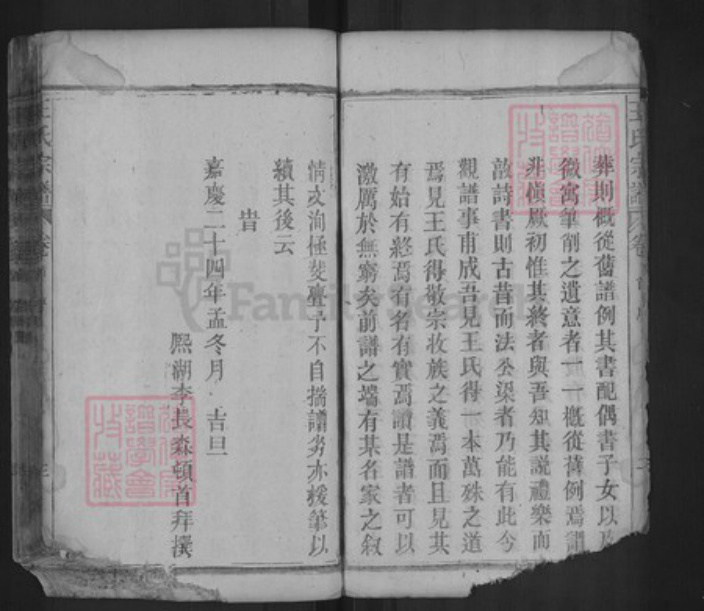 王氏宗譜
葬則概從舊譜例其書配偶書子女以及
微寓筆削之遺意者一一概從舊例焉譜
非慎厥初惟其終者與吾知其説禮樂而
敦詩書則古昔而法公梁者乃能有此今
觀譜事甫成吾見王氏得一本萬殊之道
焉見王氏得敬宗收族之義焉而且見其
有始有終焉有名有實焉讀是譜者可以
激厲於無窮矣前譜之端有某名家之敘
情文洵極斐亹予不自揣譾劣亦援筆以
續其後云
旹
嘉慶二十四年孟冬月 吉旦
熈湖李長森頓首拜撰
王氏宗譜
FamilySearch